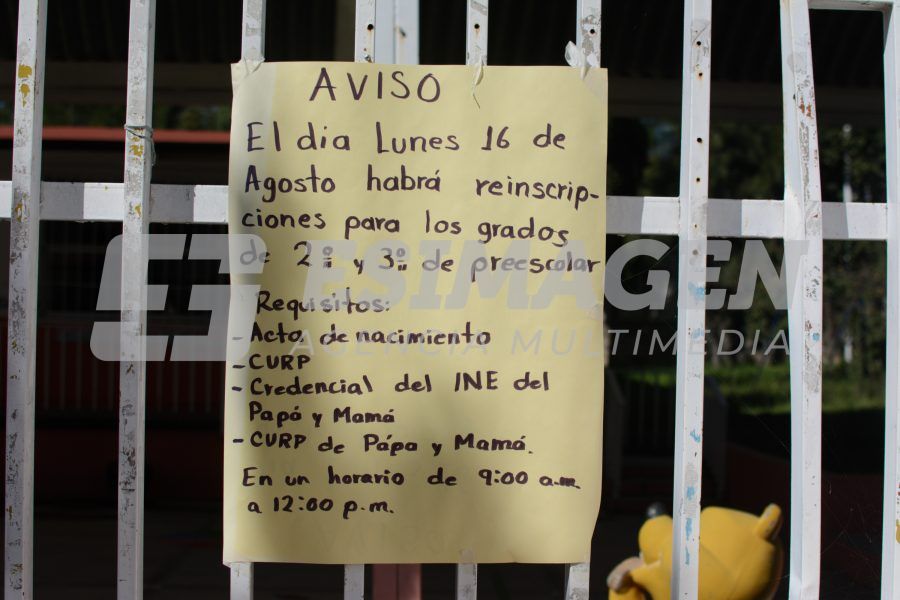 AVISO
El dia Lunes 16 de
Agosto habrá reinscrip-
ciones para los grados
de 2º y 3º de preescolar
Requisitos:
- Acta de nacimiento
- CURP
- Credencial del INE del
Papá y Mamá
- CURP de Pápa y Mamá.
En un horario de 9:00 a.m.
a 12:00 p.m.
ESIMAGEN
AGENCIA MULTIMEDIA